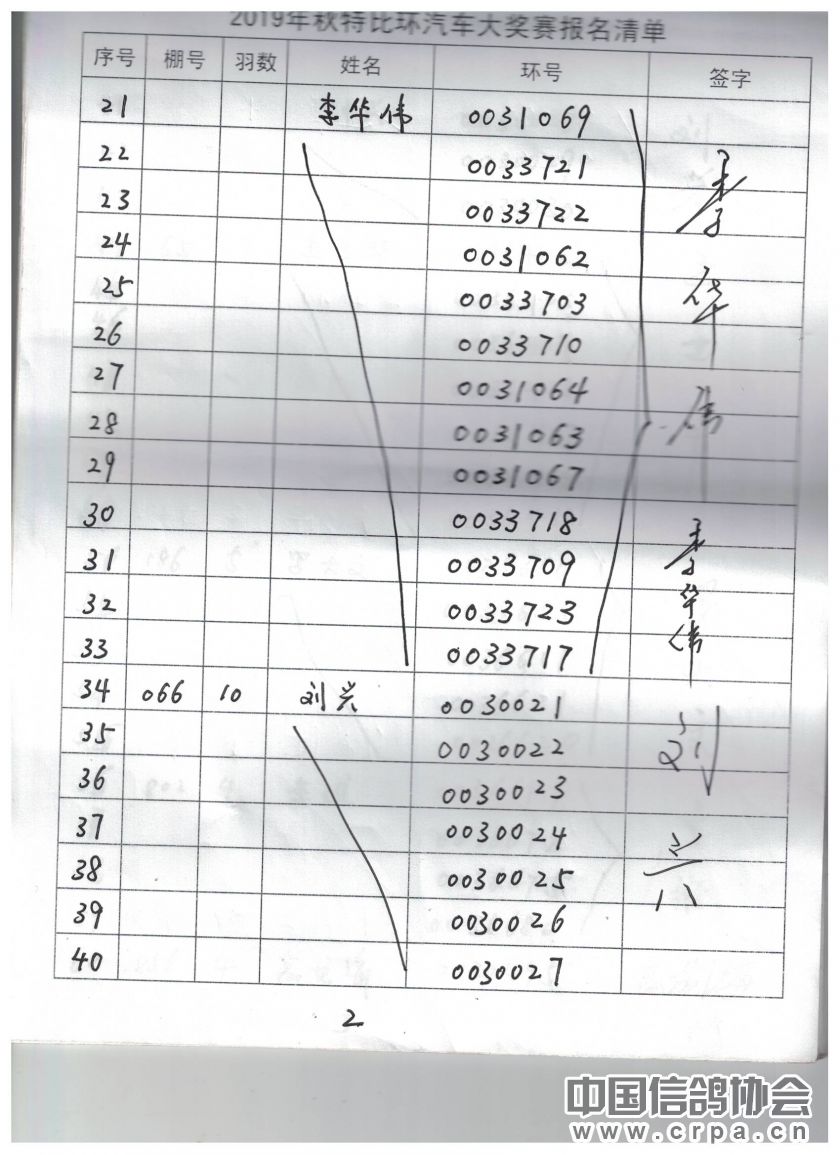 2019年秋特比环汽车大奖赛报名清单
序号 棚号 羽数 姓名 环号 签字
21 李华伟 0031069
22 0033721 李
23 0033722
24 0031062
25 0033703 华
26 0033710
27 0031064
28 0031063 伟
29 0031067
30 0033718 李
31 0033709
32 0033723 华
33 0033717 伟
34 066 10 刘兴 0030021
35 0030022 刘
36 0030023
37 0030024 兴
38 0030025
39 0030026
40 0030027
2
中国信鸽协会
www.crpa.cn